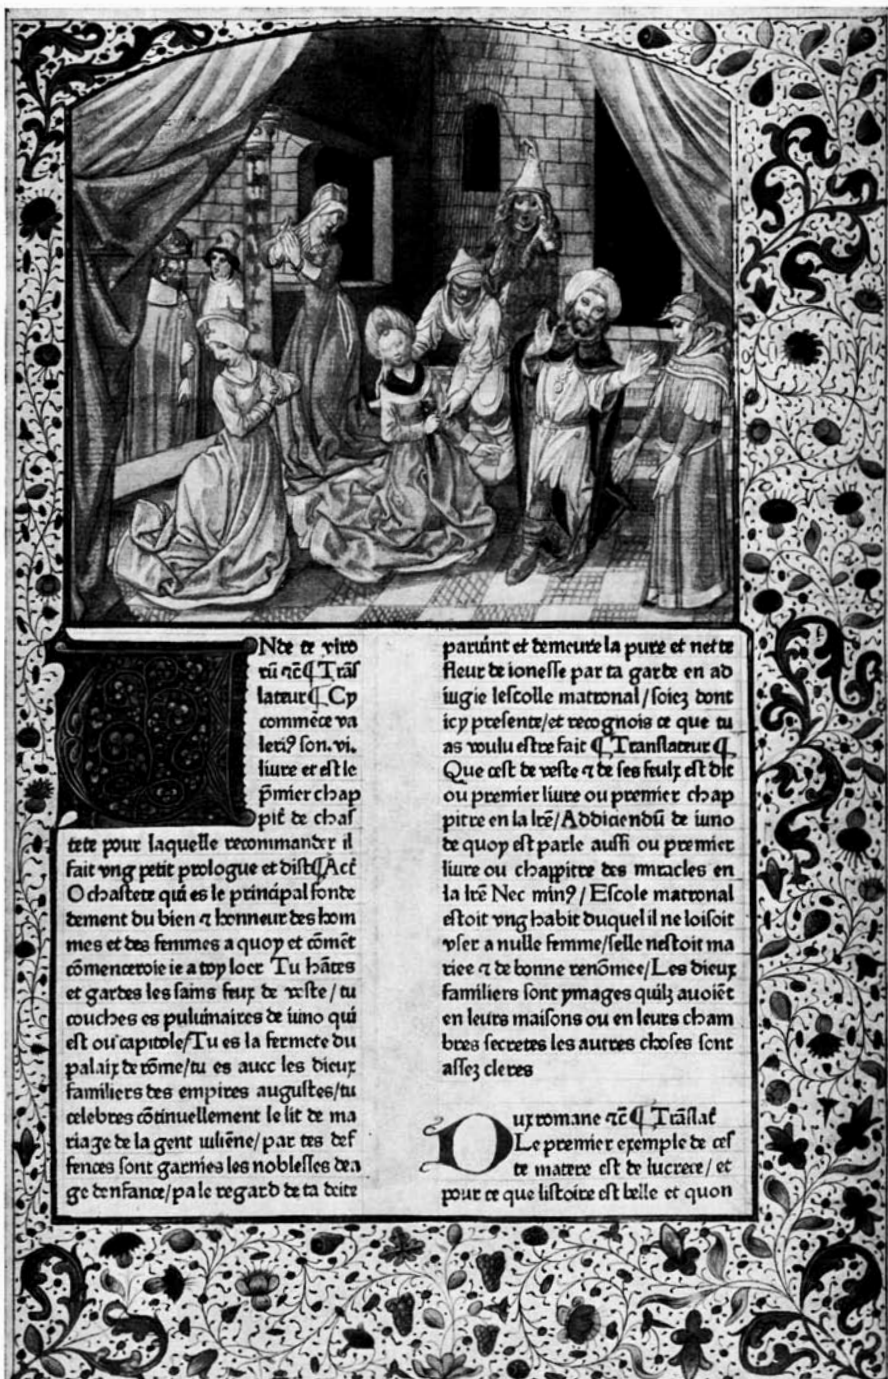 Nde te viro
rū ⁊c̄ ¶ Trāſ
lateur ¶ Cy
commēce va
leri⁹ ſon .vi.
liure et eſt le
p̄mier chap
pit̄ de chaſ
tete pour laquelle recommander il
fait vng petit prologue et diſt ¶ Act̄
O chaſtete qui es le principal fonde
dement du bien ⁊ honneur des hom
mes et des femmes a quoy et cōmēt
cōmenceroie ie a toy loer Tu hātes
et gardes les ſains feux de veſte / tu
couches es puluinaires de iuno qui
eſt ou capitole/ Tu es la fermete du
palaix de rōme/tu es auec les dieux
familiers des empires auguſtes/tu
celebres cōtinuellement le lit de ma
riage de la gent iuliēne/par tes def
fences ſont garnies les nobleſſes dea
ge denfance/pa le regard de ta deite
paruint et demeure la pure et nette
fleur de ioneſſe par ta garde en ad
iugie leſcolle matronal/ſoiez dont
icy preſente/et recognois ce que tu
as voulu eſtre fait ¶ Tranſlateur ¶
Que ceſt de veſte ⁊ de ſes feulx eſt dit
ou premier liure ou premier chap
pitre en la lrē/Addiciendū de iuno
de quoy eſt parle auſſi ou premier
liure ou chappitre des miracles en
la lrē Nec min⁹ / Eſcole matronal
eſtoit vng habit duquel il ne loiſoit
vſer a nulle femme/ſelle neſtoit ma
riee ⁊ de bonne renōmee/Les dieux
familiers ſont ymages quilz auoiēt
en leurs maiſons ou en leurs cham
bres ſecretes les autres choſes ſont
aſſez cleres
Dux romane ⁊c̄ ¶ Trāſlat̄
Le premier exemple de ceſ
te matere eſt de lucrece/ et
pour ce que liſtoire eſt belle et quon